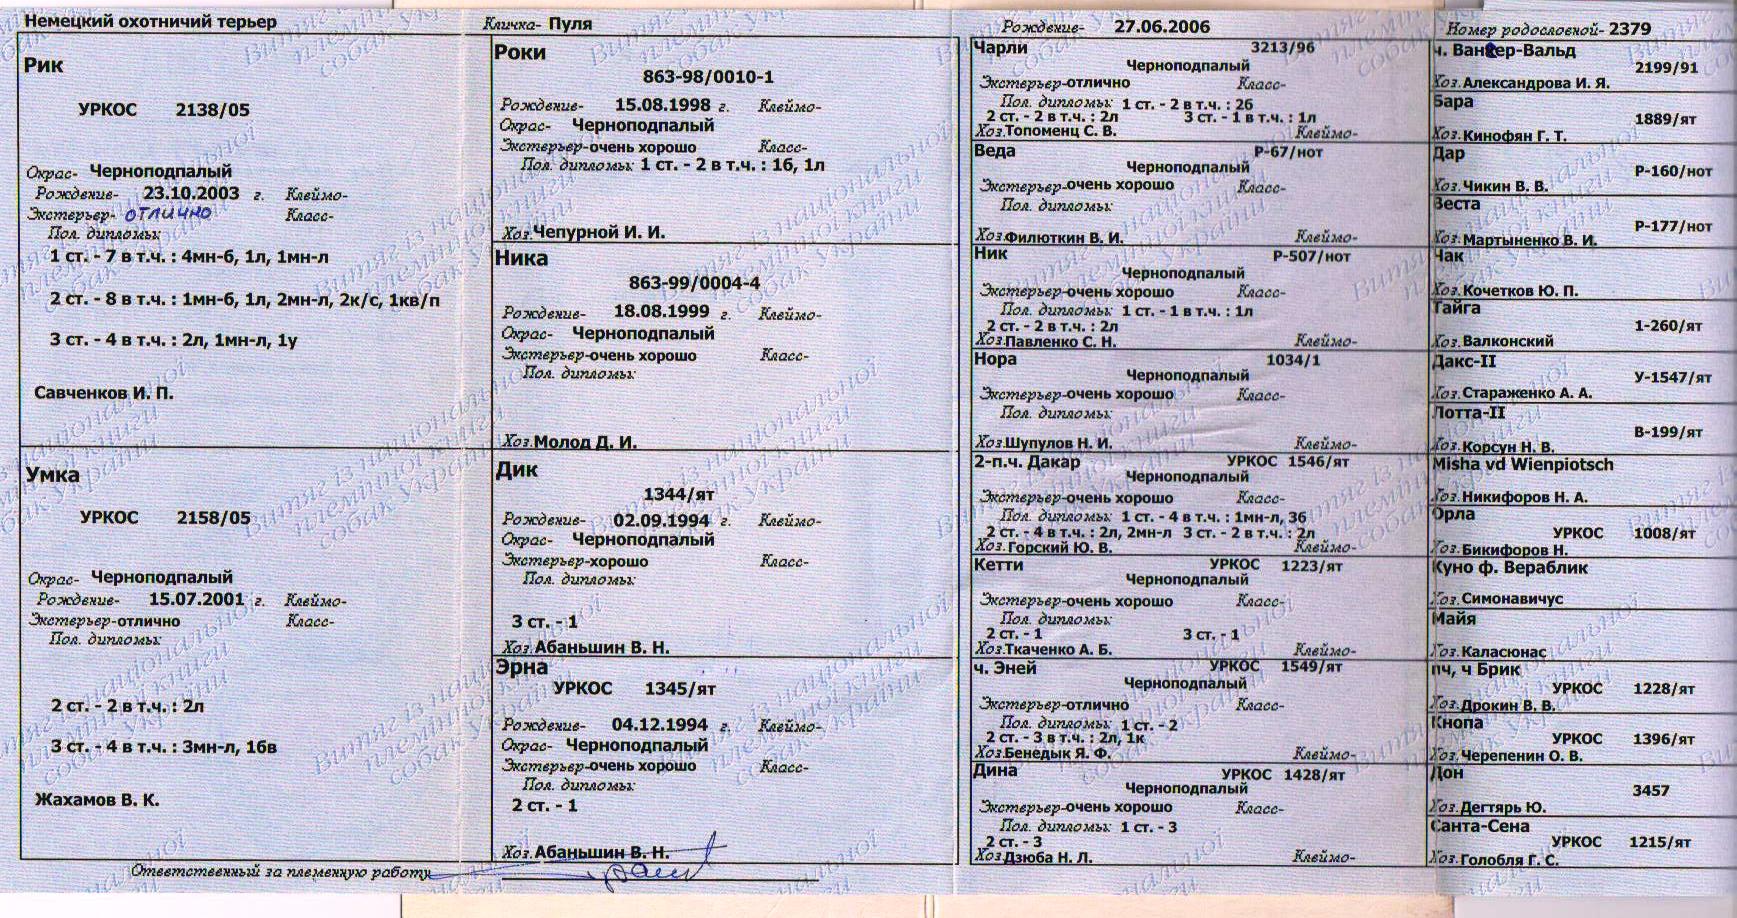 Немецкий охотничий терьер
Кличка- Пуля
Рождение- 27.06.2006
Номер родословной- 2379
Рик
УРКОС 2138/05
Окрас- Черноподпалый
Рождение- 23.10.2003 г. Клеймо-
Экстерьер- отлично Класс-
Пол. дипломы:
1 ст. - 7 в т.ч. : 4мн-б, 1л, 1мн-л
2 ст. - 8 в т.ч. : 1мн-б, 1л, 2мн-л, 2к/с, 1кв/п
3 ст. - 4 в т.ч. : 2л, 1мн-л, 1у
Савченков И. П.
Умка
УРКОС 2158/05
Окрас- Черноподпалый
Рождение- 15.07.2001 г. Клеймо-
Экстерьер-отлично Класс-
Пол. дипломы:
2 ст. - 2 в т.ч. : 2л
3 ст. - 4 в т.ч. : 3мн-л, 1бв
Жахамов В. К.
Роки
863-98/0010-1
Рождение- 15.08.1998 г. Клеймо-
Окрас- Черноподпалый
Экстерьер-очень хорошо Класс-
Пол. дипломы: 1 ст. - 2 в т.ч. : 1б, 1л
Хоз.Чепурной И. И.
Ника
863-99/0004-4
Рождение- 18.08.1999 г. Клеймо-
Окрас- Черноподпалый
Экстерьер-очень хорошо Класс-
Пол. дипломы:
Хоз.Молод Д. И.
Дик
1344/ят
Рождение- 02.09.1994 г. Клеймо-
Окрас- Черноподпалый
Экстерьер-хорошо Класс-
Пол. дипломы:
3 ст. - 1
Хоз.Абаньшин В. Н.
Эрна
УРКОС 1345/ят
Рождение- 04.12.1994 г. Клеймо-
Окрас- Черноподпалый
Экстерьер-очень хорошо Класс-
Пол. дипломы:
2 ст. - 1
Хоз.Абаньшин В. Н.
Чарли 3213/96
Черноподпалый
Экстерьер-отлично Класс-
Пол. дипломы: 1 ст. - 2 в т.ч. : 2б
2 ст. - 2 в т.ч. : 2л 3 ст. - 1 в т.ч. : 1л
Хоз.Топоменц С. В. Клеймо-
Веда Р-67/нот
Черноподпалый
Экстерьер-очень хорошо Класс-
Пол. дипломы:
Хоз.Филюткин В. И. Клеймо-
Ник Р-507/нот
Черноподпалый
Экстерьер-очень хорошо Класс-
Пол. дипломы: 1 ст. - 1 в т.ч. : 1л
2 ст. - 2 в т.ч. : 2л
Хоз.Павленко С. Н. Клеймо-
Нора 1034/1
Черноподпалый
Экстерьер-очень хорошо Класс-
Пол. дипломы:
Хоз.Шупулов Н. И. Клеймо-
2-п.ч. Дакар УРКОС 1546/ят
Черноподпалый
Экстерьер-очень хорошо Класс-
Пол. дипломы: 1 ст. - 4 в т.ч. : 1мн-л, 3б
2 ст. - 4 в т.ч. : 2л, 2мн-л 3 ст. - 2 в т.ч. : 2л
Хоз.Горский Ю. В. Клеймо-
Кетти УРКОС 1223/ят
Черноподпалый
Экстерьер-очень хорошо Класс-
Пол. дипломы:
2 ст. - 1 3 ст. - 1
Хоз.Ткаченко А. Б. Клеймо-
ч. Эней УРКОС 1549/ят
Черноподпалый
Экстерьер-отлично Класс-
Пол. дипломы: 1 ст. - 2
2 ст. - 3 в т.ч. : 2л, 1к
Хоз.Бенедык Я. Ф. Клеймо-
Дина УРКОС 1428/ят
Черноподпалый
Экстерьер-очень хорошо Класс-
Пол. дипломы: 1 ст. - 3
2 ст. - 3
Хоз.Дзюба Н. Л. Клеймо-
ч. Ванкер-Вальд
2199/91
Хоз.Александрова И. Я.
Бара
1889/ят
Хоз.Кинофян Г. Т.
Дар
Р-160/нот
Хоз.Чикин В. В.
Веста
Р-177/нот
Хоз.Мартыненко В. И.
Чак
Хоз.Кочетков Ю. П.
Тайга
1-260/ят
Хоз.Валконский
Дакс-II
У-1547/ят
Хоз.Стараженко А. А.
Лотта-II
В-199/ят
Хоз.Корсун Н. В.
Misha vd Wienpiotsch
Хоз.Никифоров Н. А.
Орла
УРКОС 1008/ят
Хоз.Бикифоров Н.
Куно ф. Вераблик
Хоз.Симонавичус
Майя
Хоз.Каласюнас
пч, ч Брик
УРКОС 1228/ят
Хоз.Дрокин В. В.
Кнопа
УРКОС 1396/ят
Хоз.Черепенин О. В.
Дон
3457
Хоз.Дегтярь Ю.
Санта-Сена
УРКОС 1215/ят
Хоз.Голобля Г. С.
Ответственный за племенную работу
Витяг із національної
племінної книги
собак України